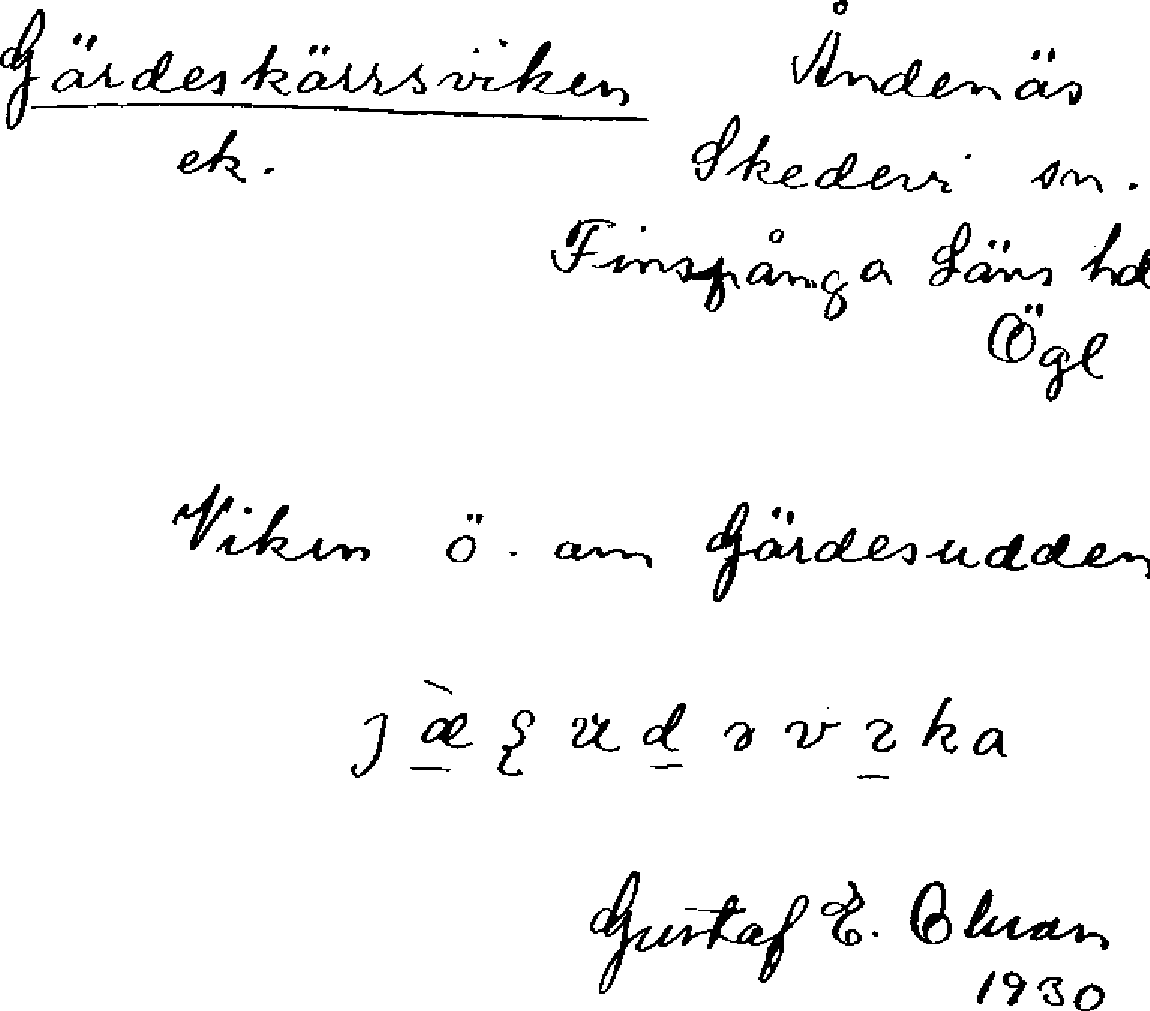 Gärdeskärrsviken Åndenäs
ek. Skedevi sn.
Finspånga Läns hd
Ögl
Viken ö. om Gärdesudden
Gustaf E.
1930